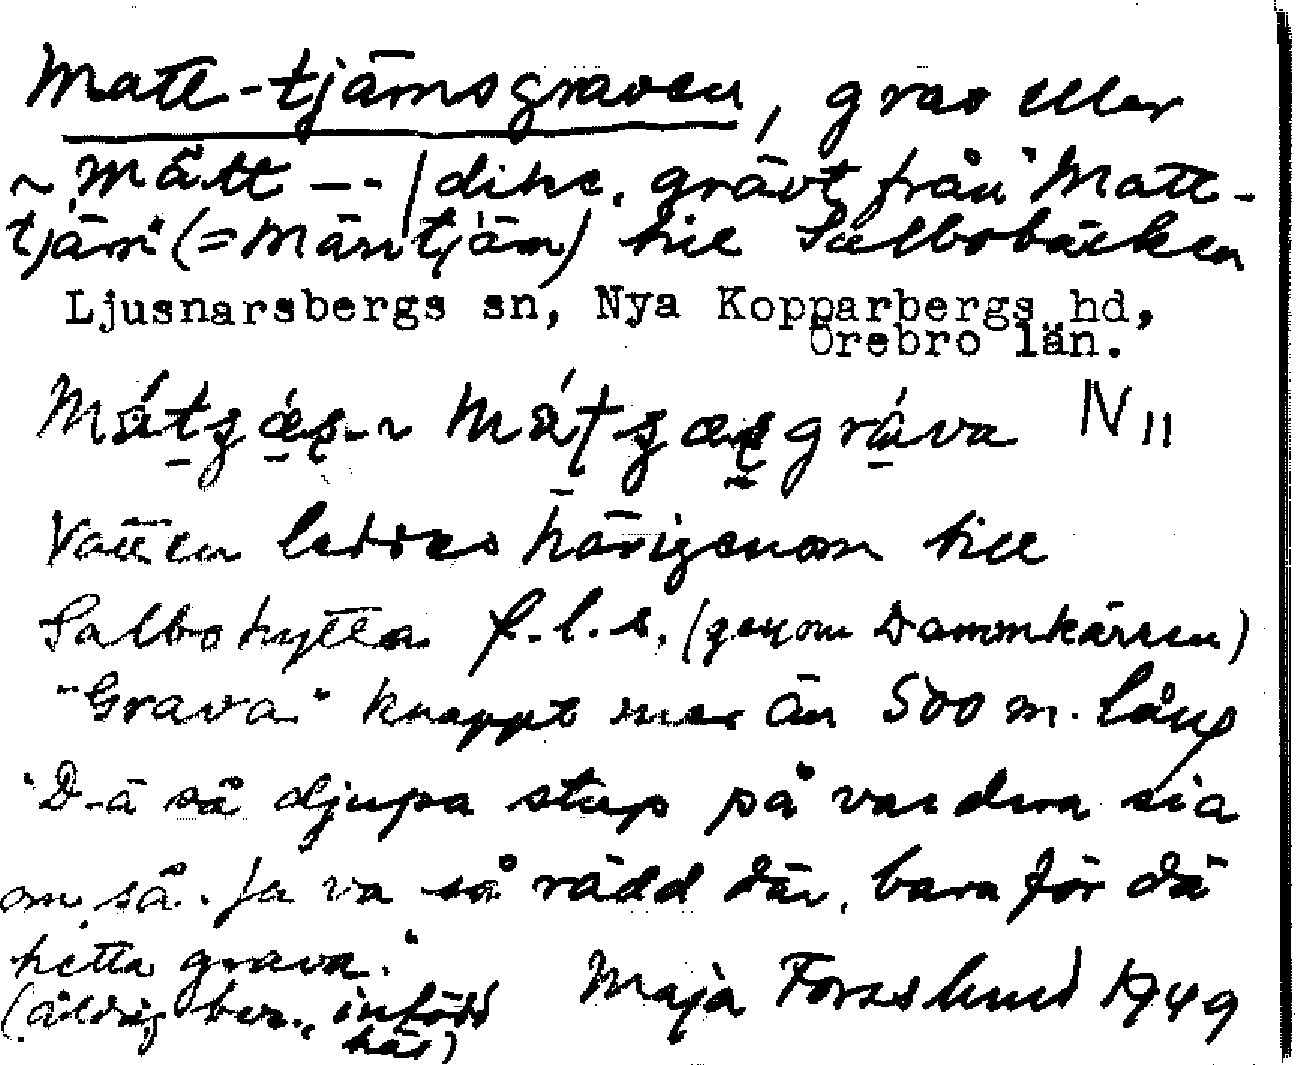 Matt-tjärnsgraven, grav eller
~ Mått — - | dike, grävt från "Matt-
tjärn" (= Märrtjärn) till Salbobäcken
Ljusnarsbergs sn, Nya Kopparbergs hd,
Örebro län.
grava N 11
Vatten leddes härigenom till
Salbohyttan f.l.s. (genom Dammkärren)
"Grava" knappt mer än 500 m. lång
"D-ä så djupa stup på vardera sia
om så. Ja va så rädd där, bara för dä
hetta grava."
(åldrig ber., införd
här)
Maja Forsslund 1949